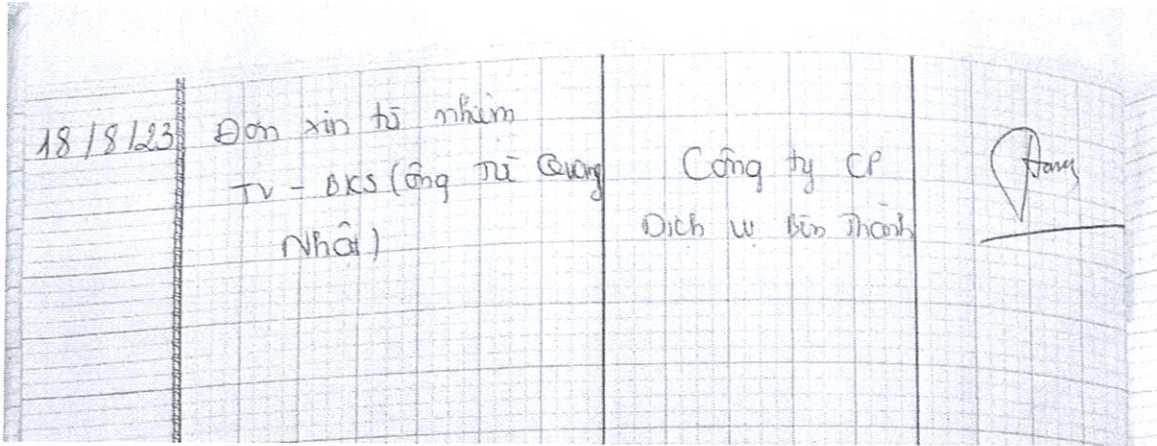 18/8/23
Đơn xin từ nhiệm
TV - BKS (ông Từ Quang
Nhật)
Công ty CP
Dịch vụ Bến Thành